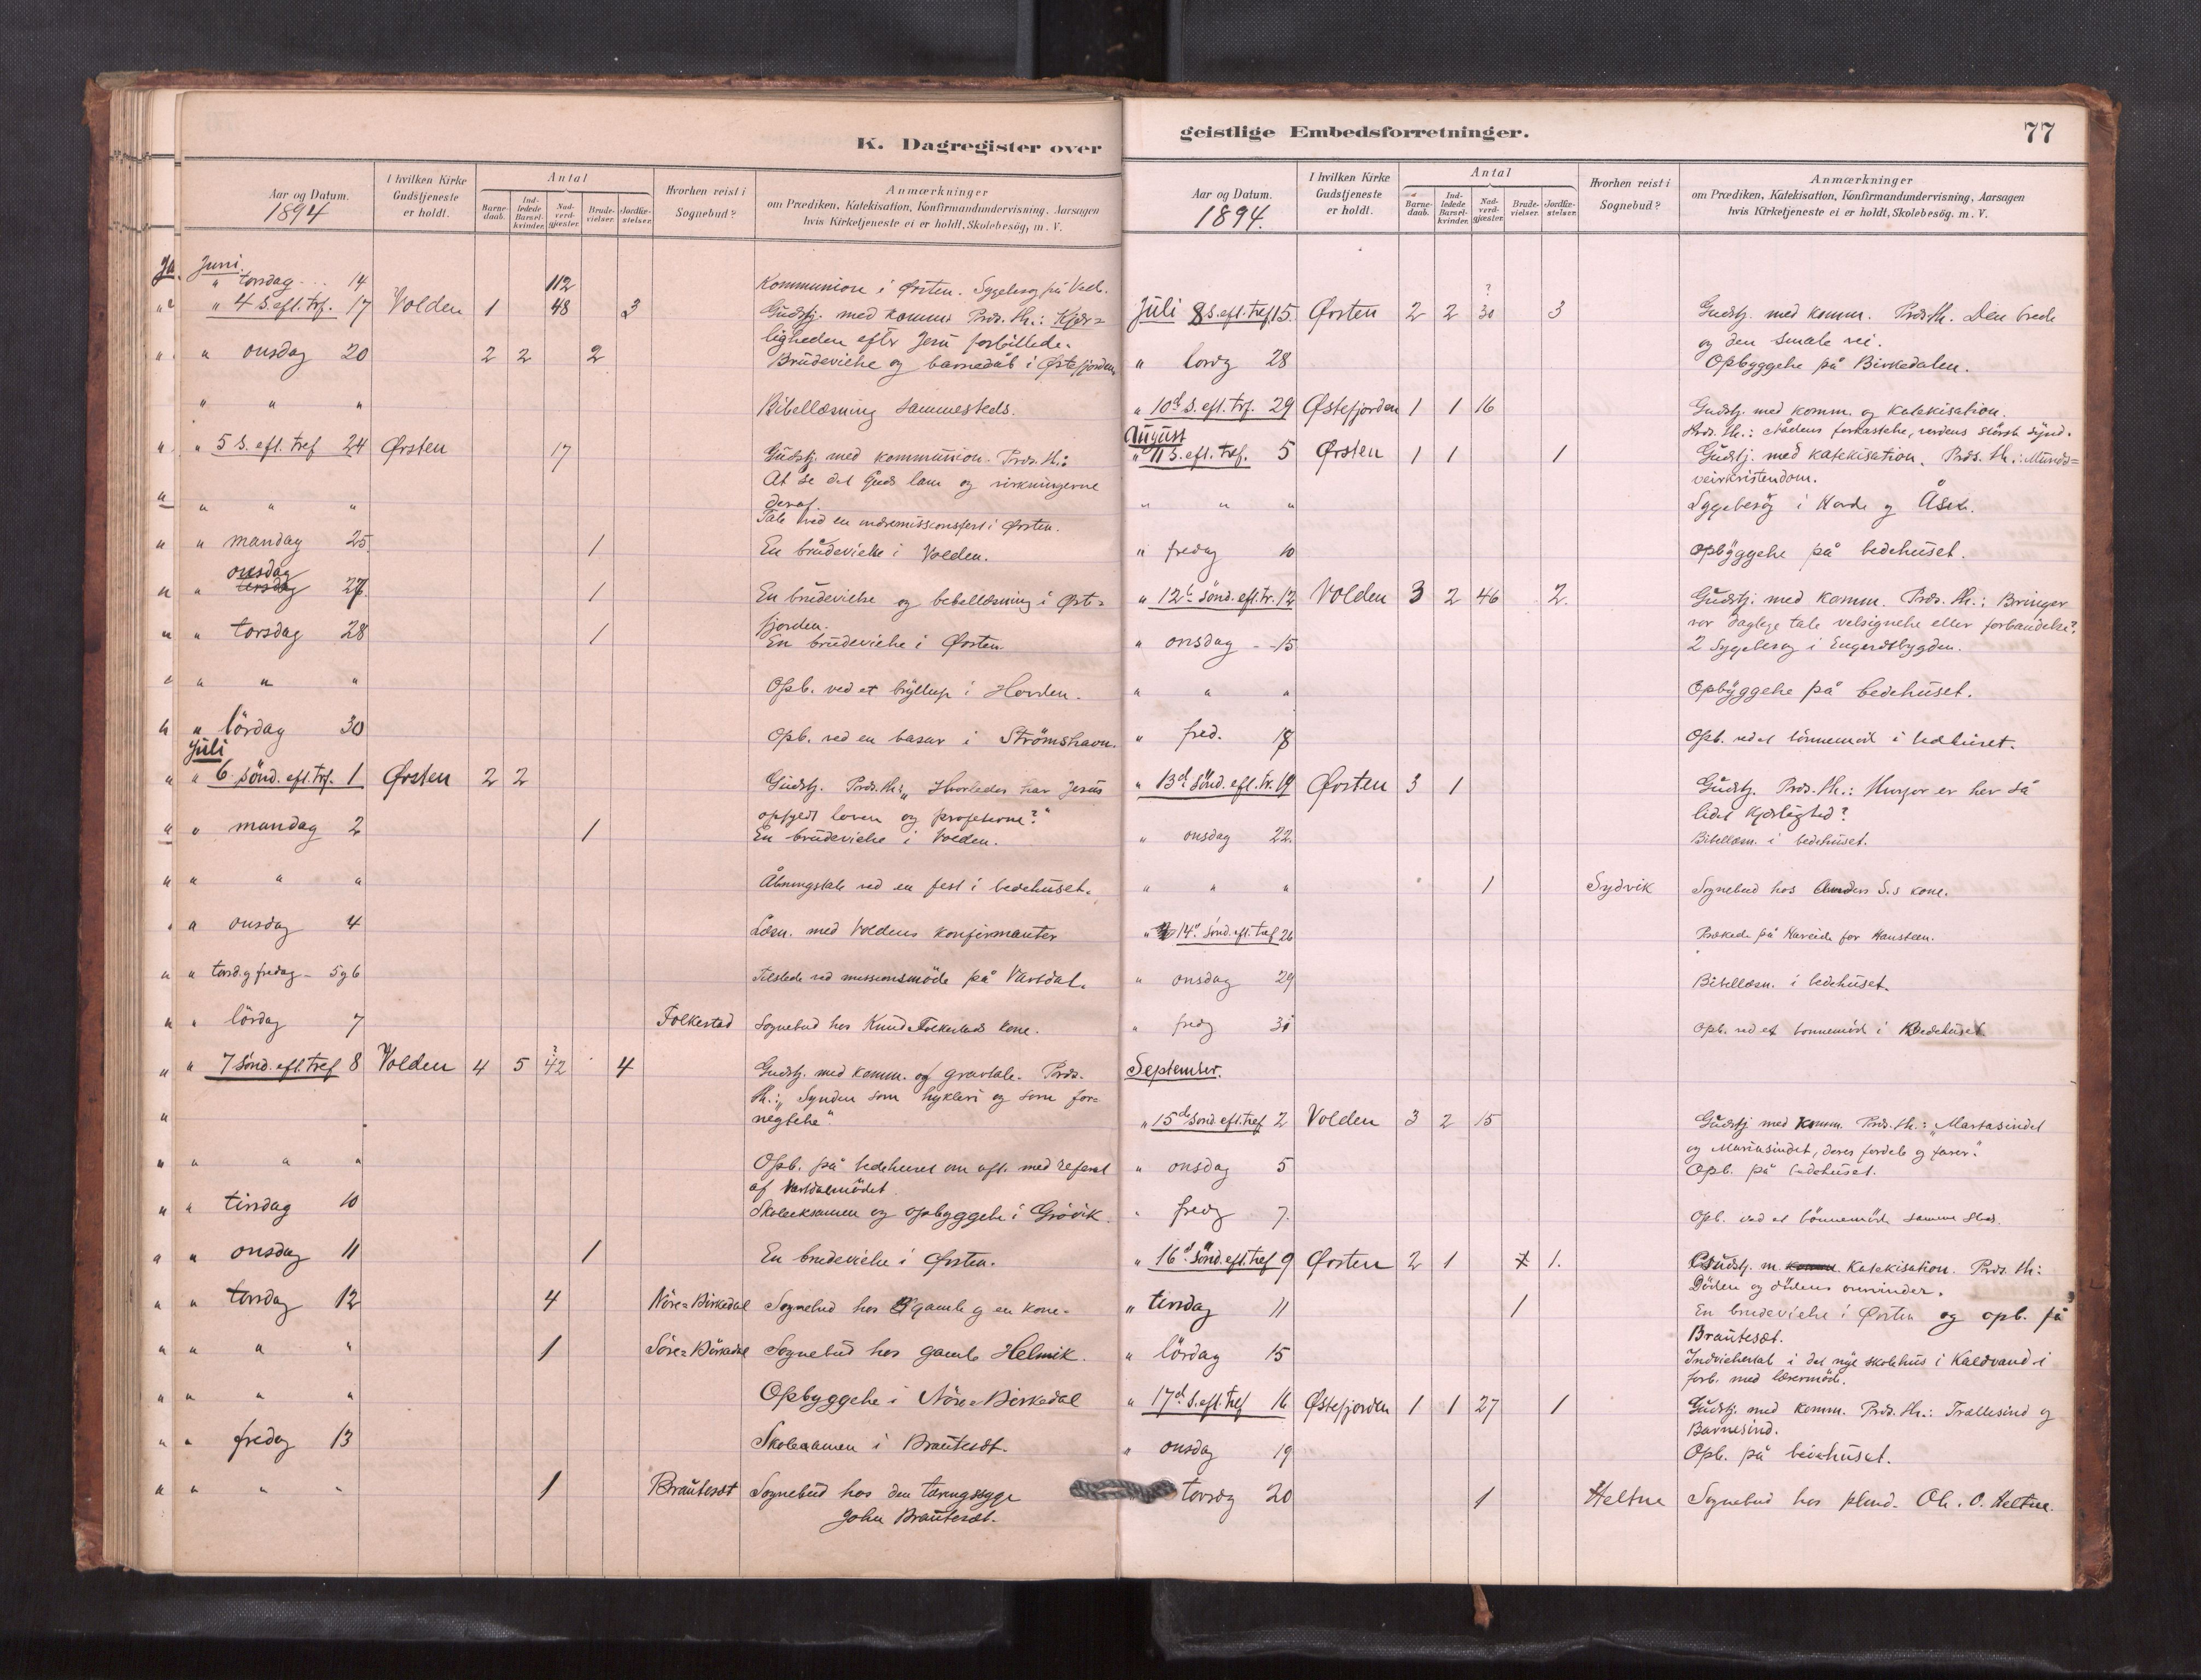 K. Dagregister over
Aar og Datum.
1894
I hvilken Kirke Gudstjeneste er holdt.
Antal
Barne-daab.
Ind-ledede Barsel-kvinder.
Nad-verd-gjester.
Brude-vielser.
Jordfæ-stelser.
Hvorhen reist i Sognebud?
Anmærkninger
om Prædiken, Katekisation, Konfirmandundervisning, Aarsagen
hvis Kirketjeneste ei er holdt, Skolebesög, m. V.
Juni
" torsdag 14 112 Kommunion i Ørsten. Sygebesøg på
" 4 S. eft. tref. 17 Volden 1 48 3 Gudstj. med komm. Præd. th.: Kjær=
ligheden efter Jesu forbillede.
" onsdag 20 2 2 2 Brudevielse og barnedåb i Østefjorden
" " " Bibellæsning sammesteds.
" 5 S. eft. tref 24 Ørsten 17 Gudstj. med kommunion. Præd. th.:
At se det Guds lam og virkningerne
deraf.
" " " Tale ved en indremissionsfest i Ørsten.
" mandag 25 1 En brudevielse i Volden.
" onsdag 27. 1 En brudevielse og bibellæsning i Øste=
fjorden.
" torsdag 28 1 En brudevielse i Ørsten.
" " " Opb. ved et bryllup i Hovden.
" lördag 30 Opb. ved en basar i Strömshavn.
Juli
" 6 sönd. eft. trf. 1 Ørsten 2 2 Gudstj. Præd. th.: "Hvorledes har Jesus
opfyldt loven og profeterne?"
" mandag 2 1 En brudevielse i Volden.
" " " Åbningstale ved en fest i bedehuset.
" onsdag 4 Læsn. med Voldens konfirmanter
" torsd. og fredag - 5 og 6 Tilstede ved missionsmöde på Vartdal.
" lördag 7 Folkestad Sognebud hos Knud Folkestads kone.
" 7 Sönd. eft. tref 8 Volden 4 5 ? 42 4 Gudstj. med komm. og gravtale. Præd.
th.: "Synden som hykleri og som for=
negtelse".
" " " Opb. på bedehuset om aft. med referat
af Vartdalmödet.
" tirsdag 10 Skoleeksamen og opbyggelse i Grövik.
" onsdag 11 1 En brudevielse i Ørsten.
" torsdag 12 4 Nöre=Birkedal Sognebud hos 3 gamle og en kone.
" " " 1 Söre=Birkedal Sognebud hos gamle Helmik.
" " " Opbyggelse i Nöre=Birkedal
" fredag 13 Skoleexamen i Brautesæt.
" " " 1 Brautesæt Sognebud hos den tæringssyge
John Brautesæt.
geistlige Embedsforretninger.
77
Aar og Datum.
1894.
I hvilken Kirke Gudstjeneste er holdt.
Antal
Barne-daab.
Ind-ledede Barsel-kvinder.
Nad-verd-gjæster.
Brude-vielser.
Jordfæ-stelser.
Hvorhen reist i Sognebud?
Anmærkninger
om Prædiken, Katekisation, Konfirmandundervisning, Aarsagen
hvis Kirketjeneste ei er holdt, Skolebesög. m. V.
Juli 8 S. eft. tref. 15. Ørsten 2 2 ? 30 3 Gudstj. med komm. Præd. th. Den brede
og den smale vei.
" lördag 28 Opbyggelse på Birkedalen.
" 10d S. eft. trf. 29 Østefjorden 1 1 16 Gudstj. med komm. og katekisation.
Præd. th.: Nådens forkastelse, verdens störste synd.
August
" 11 S. eft. tref. 5 Ørsten 1 1 1 Gudstj. med katekisation. Præd. th.: Munds=
veirkristendom.
" " " Sygebesög i Hovde og Åsen.
" fredag 10 Opbyggelse på bedehuset.
" 12te sönd. eft. tr. 12 Volden 3 2 46 2. Gudstj. med komm. Præd. th.: Bringer
vor daglige tale velsignelse eller forbandelse?
" onsdag - - 15 2 Sygebesøg i Engesetbygden.
" " " Opbyggelse på bedehuset.
" fred. 18 Opb. ved et bönnemöde i bedehuset.
" 13d sönd. eft. tr. 19 Ørsten 3 1 Gudstj. Præd. th.: Hvorfor er her så
lidet kjærlighed?
" onsdag 22. Bibellæsn. i bedehuset.
" " " 1 Sydvik Sognebud hos Anders S.s kone.
" 14d sönd. eft. tref 26 Prækede på Hareide for Hansteen.
" onsdag 29 Bibellæsn. i bedehuset.
" fredg 31 Opb. ved et bönnemöde i Bedehuset
September.
" 15de sönd. eft. tref 2 Volden 3 2 15 Gudstj med komm. Præd. th.: "Martasindet
og Mariasindet, deres fordele og farer".
" onsdag 5 Opb. på bedehuset.
" fredg 7. Opb. ved et bönnemöde samme sted.
" 16d sönd. eft. tref 9 Ørsten 2 1 1. Gudstj. m. komm. Katekisation. Præd. th:
Döden og dödens overvinder.
" tirsdag 11 1 En brudevielse i Ørsten og opb. på
Brautesæt.
" lördag 15 Indvielsestale i det nye skolehus i Kaldvand i
forb. med læsermöde.
" 17d S. eft. tref 16 Østefjorden 1 1 27 1 Gudstj. med komm. Præd. th.: Trællesind og
Barnesind.
" onsdag 19 Opb. på bedehuset.
torsdg 20 1 Heltne Sognebud hos pund. Ole O. Heltne.